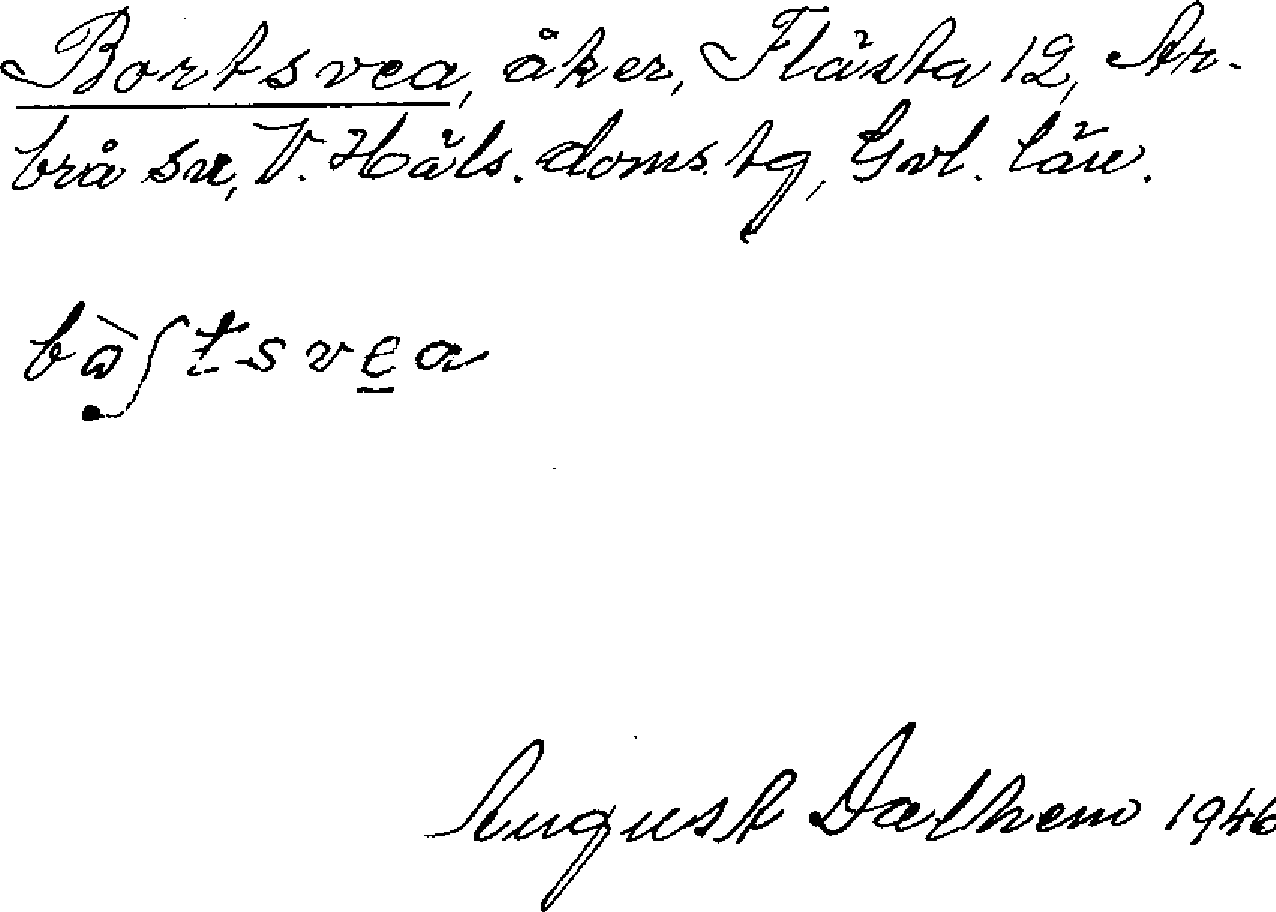 Bortsvea, åker, Flästa 12, Ar-
brå sn, V. Häls. doms. tg, Gvl. län.
August Dalhem 1946